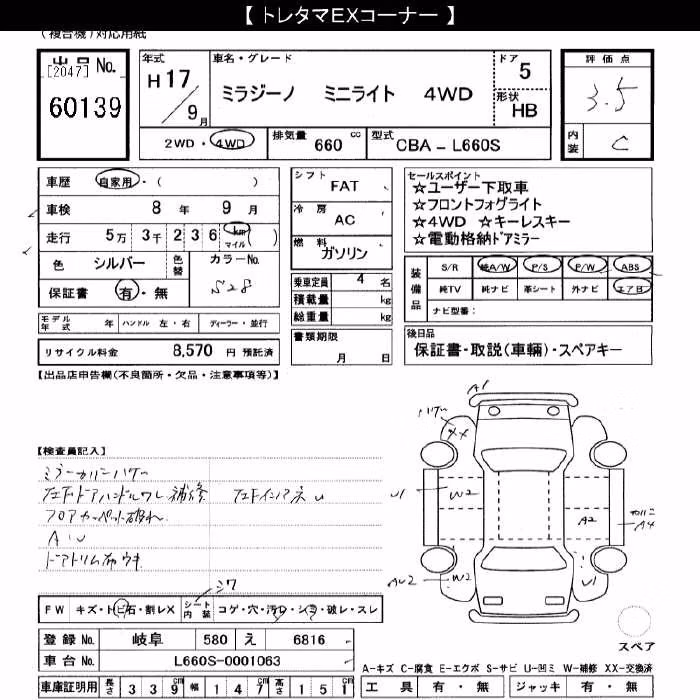 【 トレタマEXコーナー 】
(複合機)対応用紙
出品 No.
[2047]
60139
年式
H 17
／ 9月
車名・グレード
ミラジーノ ミニライト 4WD
ドア
5
形状
HB
評価点
3.5
内装
C
2WD・4WD
排気量 660 cc
型式 CBA－L660S
車歴 自家用・( )
車検 8 年 9 月
走行 5万 3千 2 3 6 km マイル ( )
色 シルバー 色替 カラーNo.
S28
保証書 有・無
シフト FAT
冷房 AC
燃料 ガソリン
乗車定員 4 名
積載量 kg
総重量 kg
セールスポイント
☆ユーザー下取車
☆フロントフォグライト
☆4WD ☆キーレスキー
☆電動格納ドアミラー
装備品
S/R 純A/W P/S P/W ABS
純TV 純ナビ 革シート 外ナビ エアB
ナビ型番：
モデル年式 年 ハンドル 左・右 ディーラー・並行
リサイクル料金 8,570 円 預託済
書類期限
月 日
後日品
保証書・取説(車輛)・スペアキー
【出品店申告欄(不良箇所・欠品・注意事項等)】
【検査員記入】
ミラーカバーハゲ
フロアカーペット破れ
A U
ドアトリム布ウキ
シワ
FW キズ・トビ石・割レX シート内装 コゲ・穴・汚レ・シミ・破レ・スレ
登録 No. 岐阜 580 え 6816
車台 No. L660S-0001063
車庫証明用 長さ 3 3 9 cm 幅 1 4 7 cm 高さ 1 5 1 cm
A1
ハゲ
XX
U1
W2
A2
A4
AU2
W2
U1
スペア
A－キズ C－腐食 E－エクボ S－サビ U－凹ミ W－補修 XX－交換済
工具 有・無 ジャッキ 有・無